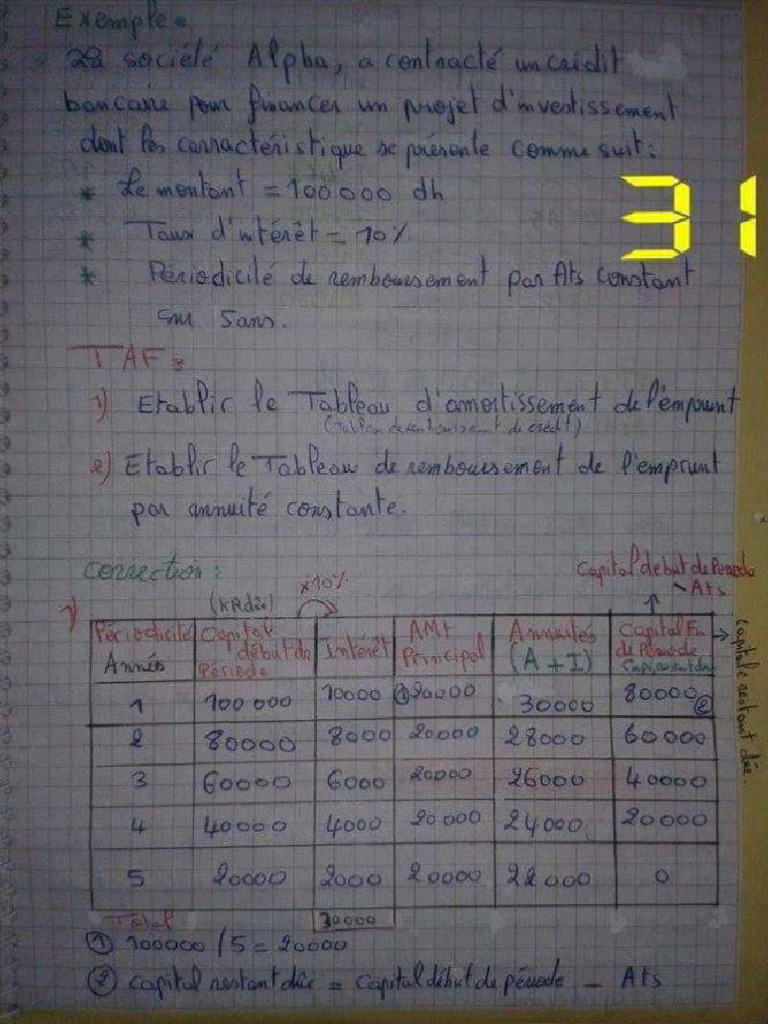 Exemple:
La société Alpha, a contracté un crédit
bancaire pour financer un projet d'investissement
dont les carractéristique se présente comme suit:
* Le montant = 100 000 dh
31
* Taux d'intérêt = 10%
* Périodicité de remboursement par Ats constant
sur 5ans.
TAF:
1) Etablir le Tableau d'amortissement de l'emprunt
(de crédit)
2) Etablir le Tableau de remboursement de l'emprunt
par annuité constante.
correction:
Capital début de Période
- Ats
(KRdûe) x10%
1)
Périodicité Années | Capital début de Période | Intérêt | AMt Principal | Annuités (A + I) | Capital Fin de Période
capitale restant dûe.
1 | 100 000 | 10000 | ① 20000 | 30000 | 80000 ②
2 | 80000 | 8000 | 20000 | 28000 | 60000
3 | 60000 | 6000 | 20000 | 26000 | 40000
4 | 40000 | 4000 | 20 000 | 24000 | 20000
5 | 20000 | 2000 | 20000 | 22 000 | 0
Total 30000
① 100000 / 5 = 20000
② capital restant dûe = capital début de période - Ats